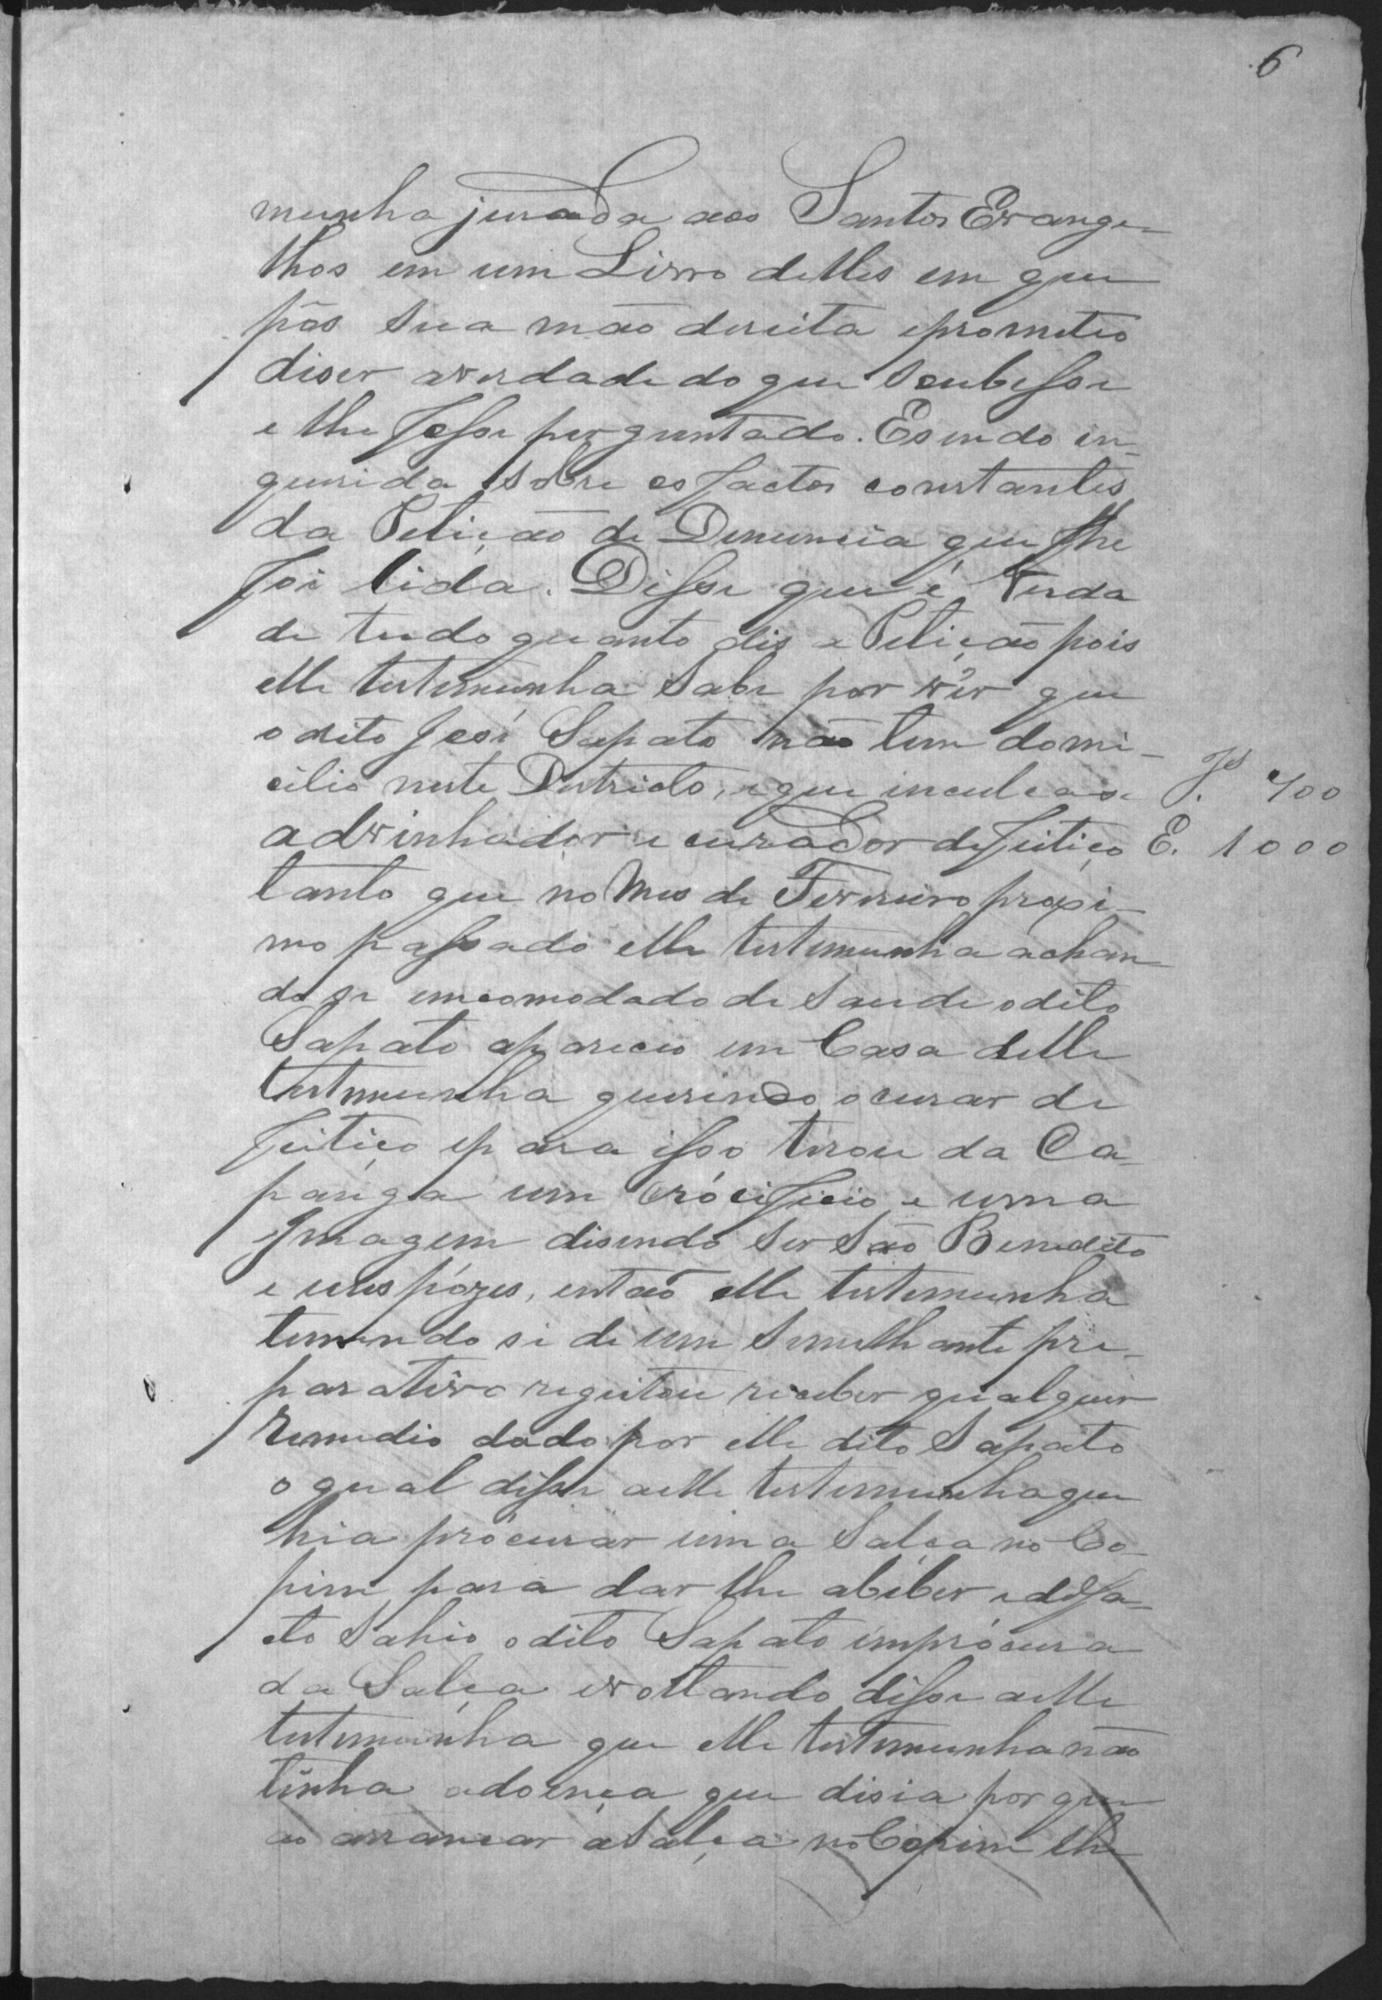 6
munha jurada aos Santos Evange-
lhos em um Livro delles em que
pôs sua mão direita eprometeo
diser averdade do que Soubesse
e lhe fosse perguntado. E sendo in-
querida sobre os factos constantes
da Petição de Denuncia que lhe
foi lida. Disse que é Verda
de tudo quanto dis a Petição pois
elle testemunha Sabe por vêr que
o dito José Sapato não tem domi-
cilio neste Destricto, e que inculca se
J. 400
advinhador e curador de feitiço
E. 1000
tanto que no Mes de Ferreiro proxi-
mo passado elle testemunha achan
do se emcomodado de Saude odito
Sapato apareceo em Casa delle
testemunha querendo o curar de
feitiço epara isso tirou da Ca-
panga um Crócificio e uma
Imagem disendo ser São Benedito
e uns pózes, então elle testemunha
temendo si de um Semelhante pre-
parativo regeitou receber qualquer
Remedio dado por elle dito Sapato
o qual disse aelle testemunha que
hia procurar uma Salça no Co-
pim para dar lhe abeber e defa-
cto Sahio odito Sapato emprócura
da Salça evoltando disse aelle
testemunha que elle testemunha não
tinha adoença que disia por que
ao arrancar aSalça no Copim lhe